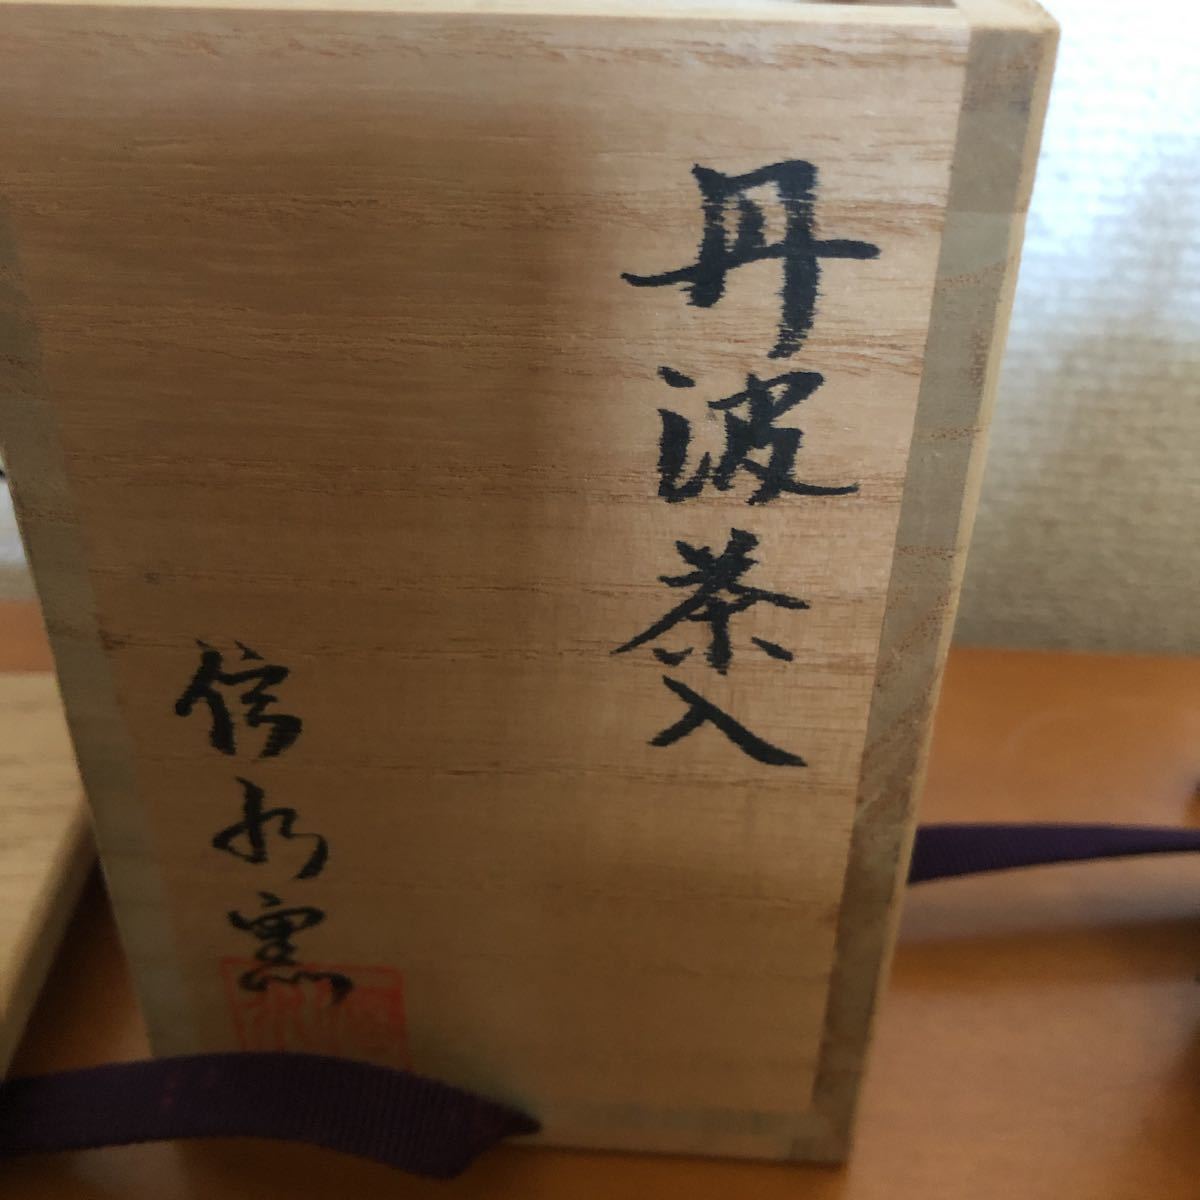 丹波茶入
信水窯